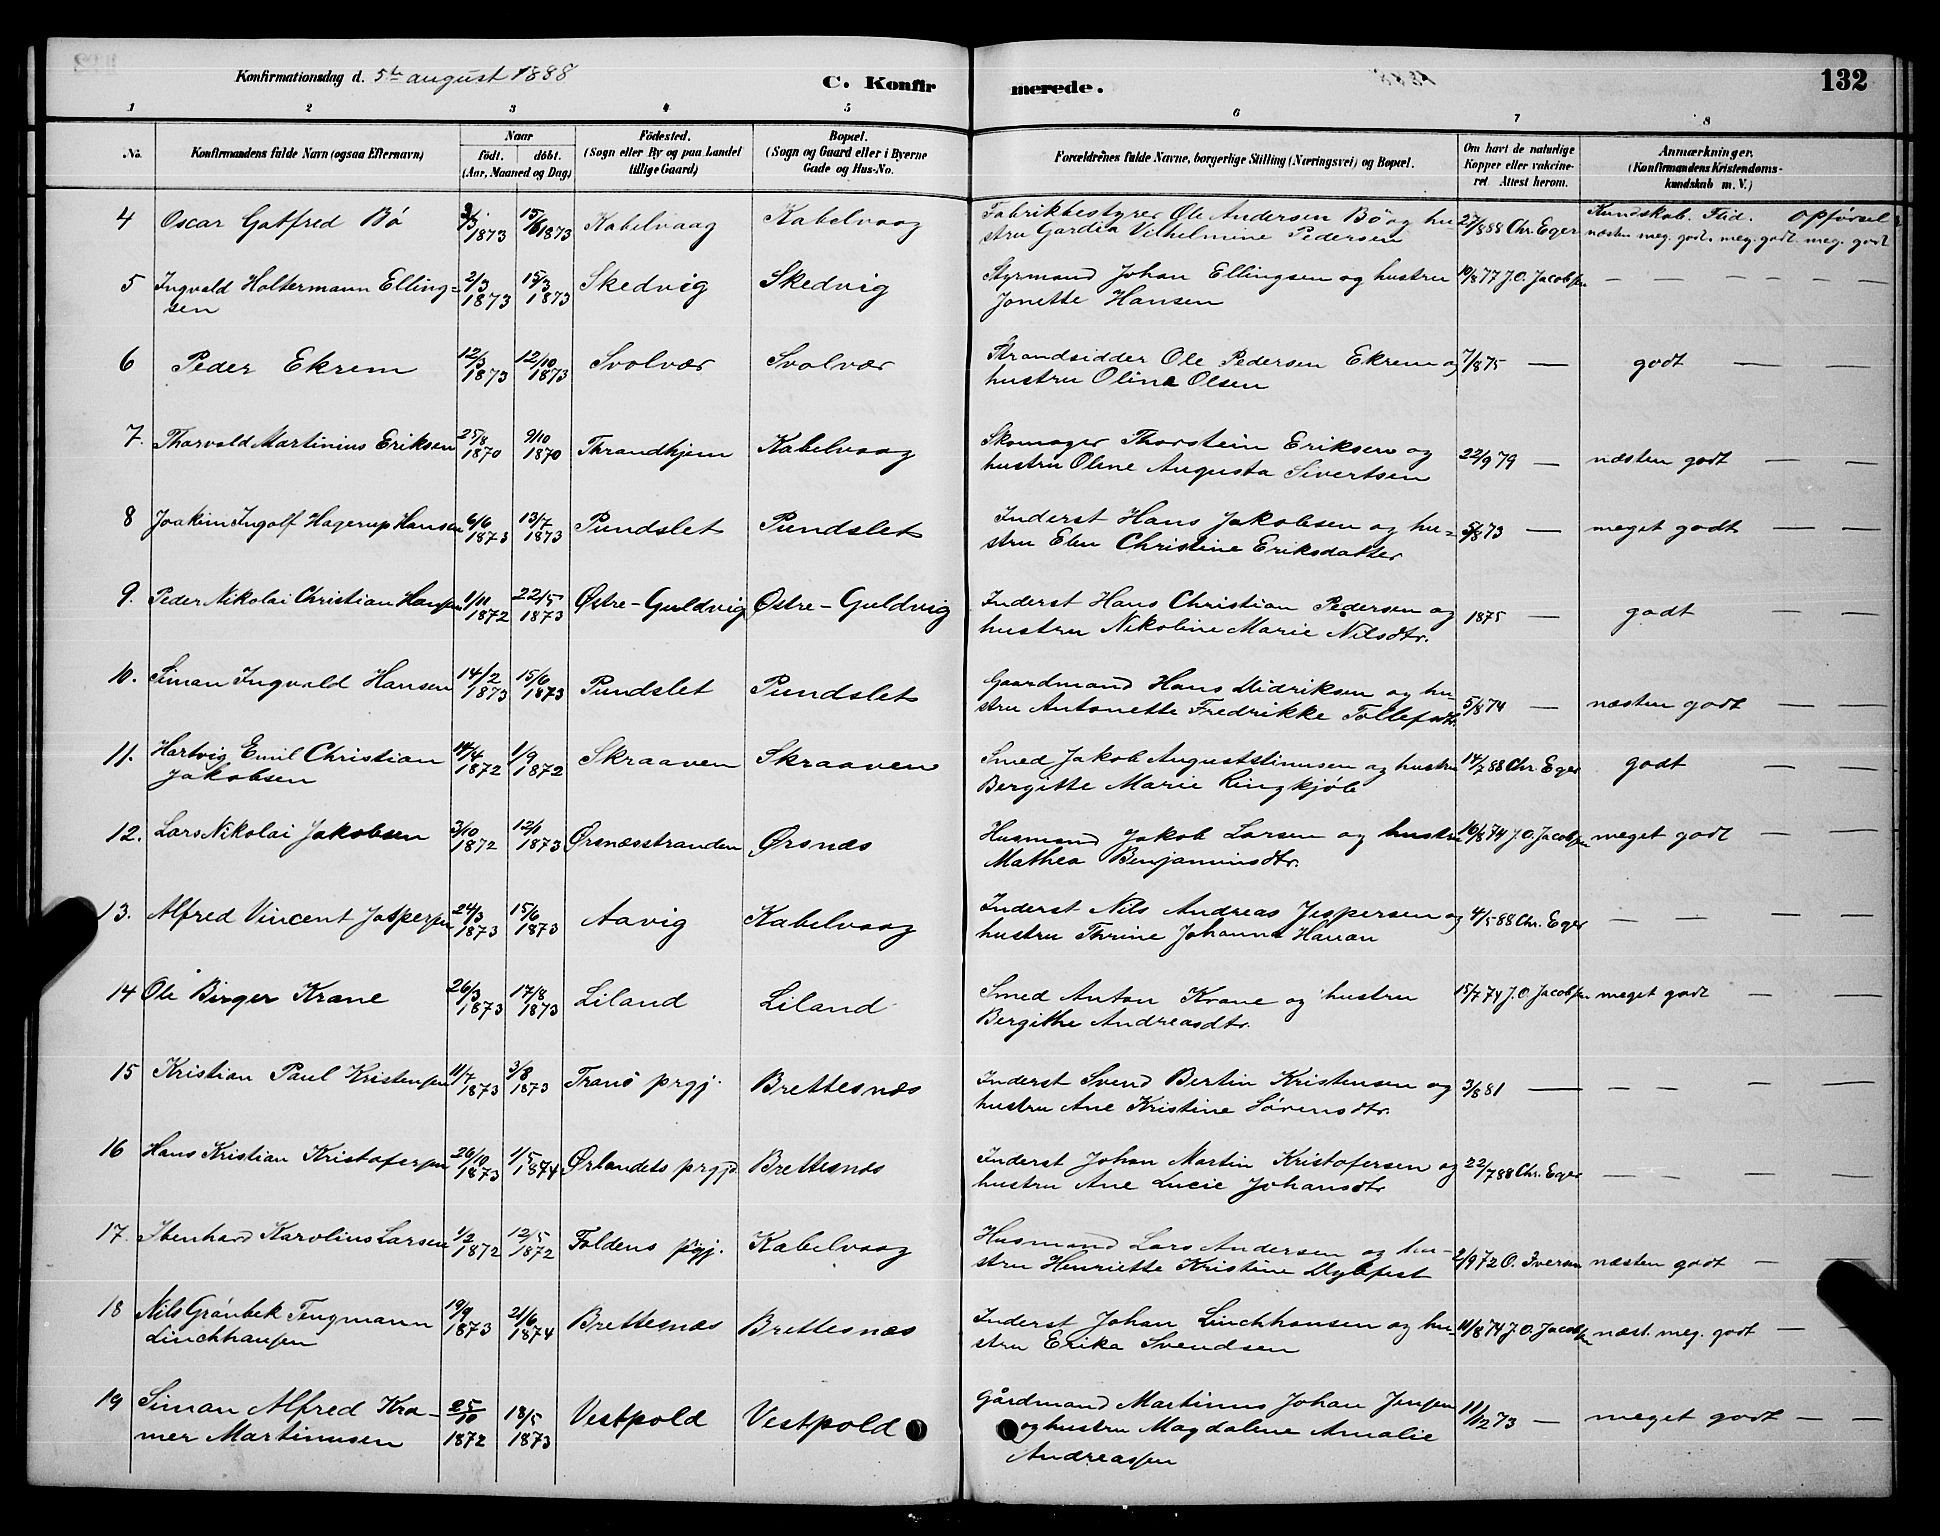 Konfirmationsdag d. 5te august 1888 C. Konfirmerede. 132
1 2 3 4 5 6 7 8
No. Konfirmandens fulde Navn (ogsaa Efternavn) Naar födt. döbt. (Aar, Maaned og Dag) Födested. (Sogn eller By og paa Landet tillige Gaard) Bopæl. (Sogn og Gaard eller i Byerne Gade og Hus-No. Forældrenes fulde Navne, borgerlige Stilling (Næringsvei) og Bopæl. Om havt de naturlige Kopper eller vakcineret Attest herom. Anmærkninger. (Konfirmandens Kristendomskundskab m. V.)
4 Oscar Gotfred Bö 1873 15/6 1873 Kabelvaag Kabelvaag Fabrikbestyrer Ole Andersen Bö og hu- 27/888 Chr. Eger Kundskab. Flid. Opförsel
stru Gardea Vilhelmine Pedersen næsten meg. godt. meg. godt. meg. godt
5 Ingvald Holtermann Elling= 2/3 1873 15/3 1873 Skedvig Skedvig Styrmand Johan Ellingsen og hustru 10/877 J.O. Jacobsen — — — — —
sen Jonette Hansen
6 Peder Ekrem 12/3 1873 12/10 1873 Svolvær Svolvær Strandsidder Ole Pedersen Ekrem og 7/875 — godt — —
hustru Oline Olsen
7. Thorvald Martinius Eriksen 25/8 1870 9/10 1870 Thrandhjem Kabelvaag Skomager Thorstein Eriksen og 22/9 79 — næsten godt — —
hustru Oline Augusta Sivertsen
8 Joakim Ingolf Hagerup Hansen 6/6 1873 13/7 1873 Pundslet Pundslet Inderst Hans Jakobsen og hu= 5/873 — meget godt — —
stru Elen Christine Eriksdatter
9. Peder Nikolai Christian Hansen 1/11 1872 22/5 1873 Østre-Guldvig Østre-Guldvig Inderst Hans Christian Pedersen og 1875 — godt — —
hustru Nikoline Marie Nilsdtr.
10. Simon Ingvald Hansen 14/2 1873 15/6 1873 Pundslet Pundslet Gaardmand Hans Didriksen og hu- 5/874 — næsten godt — —
stru Antonette Fredrikke Tollefsdtr
11. Hartvig Emil Christian 14/4 1872 1/9 1872 Skraaven Skraaven Smed Jakob Augustinusen og hustru 14/788 Chr. Eger godt — —
Jakobsen Bergitte Marie Ringkjöb
12. Lars Nikolai Jakobsen 3/10 1872 12/1 1873 Ørsnæsstranden Ørsnæs Husmand Jakob Larsen og hustru 16/874 J.O. Jacobsen meget godt — —
Mathea Benjaminsdtr.
13. Alfred Vincent Jespersen 24/3 1873 15/6 1873 Aavig Kabelvaag Inderst Nils Andreas Jespersen og 4/588 Chr. Eger — — — —
hustru Thrine Johanna Hanan
14 Ole Birger Krane 26/3 1873 17/8 1873 Liland Liland Smed Anton Krane og hustru 15/774 J.O. Jacobsen meget godt — —
Bergithe Andreasdtr.
15 Kristian Paul Kristensen 11/7 1873 3/8 1873 Tranö prgj. Brettesnæs Inderst Svend Bertin Kristensen og 3/881 — — — — —
hustru Ane Kristine Sörensdtr.
16 Hans Kristian Kristofersen 26/10 1873 1/5 1874 Ørlandets prgj. Brettesnæs Inderst Johan Martin Kristofersen og 22/788 Chr. Eger — — — —
hustru Ane Lucie Johansdtr
17. Ibenhard Karolius Larsen 1/2 1872 12/5 1872 Foldens prgj. Kabelvaag Husmand Lars Andersen og hu-
stru Henriette Kristine Dybfest 2/972 O. Iversen næsten godt —
18 Nils Grönbek Tengmann 19/9 1873 21/6 1874 Brettesnæs Brettesnæs Inderst Johan Linchhausen og hu- 11/874 J.O. Jacobsen næst. meg. godt — —
Linchhausen stru Erika Svendsen
19 Simon Alfred Kra- 25/10 1872 18/5 1873 Vestpold Vestpold Gårdmand Martinus Johan Jensen 11/1273 — meget godt — —
mer Martinusen og hustru Magdaline Amalie
Andreassen